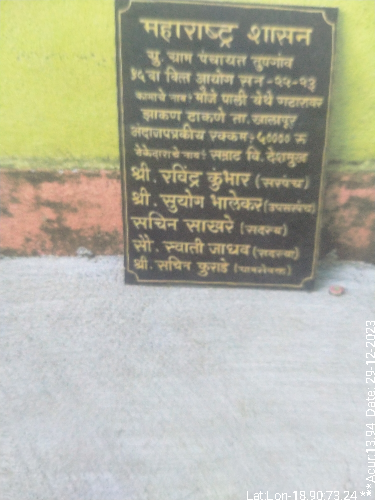 महाराष्ट्र शासन
ग्रु. ग्राम पंचायत तुपगांव
१५वा वित्त आयोग सन -२२-२३
कामाचे नाव: मौजे पाली येथे गटारावर
झाकण टाकणे ता. खालापूर
अंदाजपत्रकीय रक्कम: ५०००० रु
ठेकेदाराचे नाव: सम्राट वि. देशमुख
श्री. रविंद्र कुंभार (सरपंच)
श्री. सुयोग भालेकर (उपसरपंच)
सचिन साखरे (सदस्य)
सौ. स्वाती जाधव (सदस्या)
श्री. सचिन कुराडे (ग्रामसेवक)
Lat Lon-18.90:73.24 **
**Acur:13.94, Date: 29-12-2023